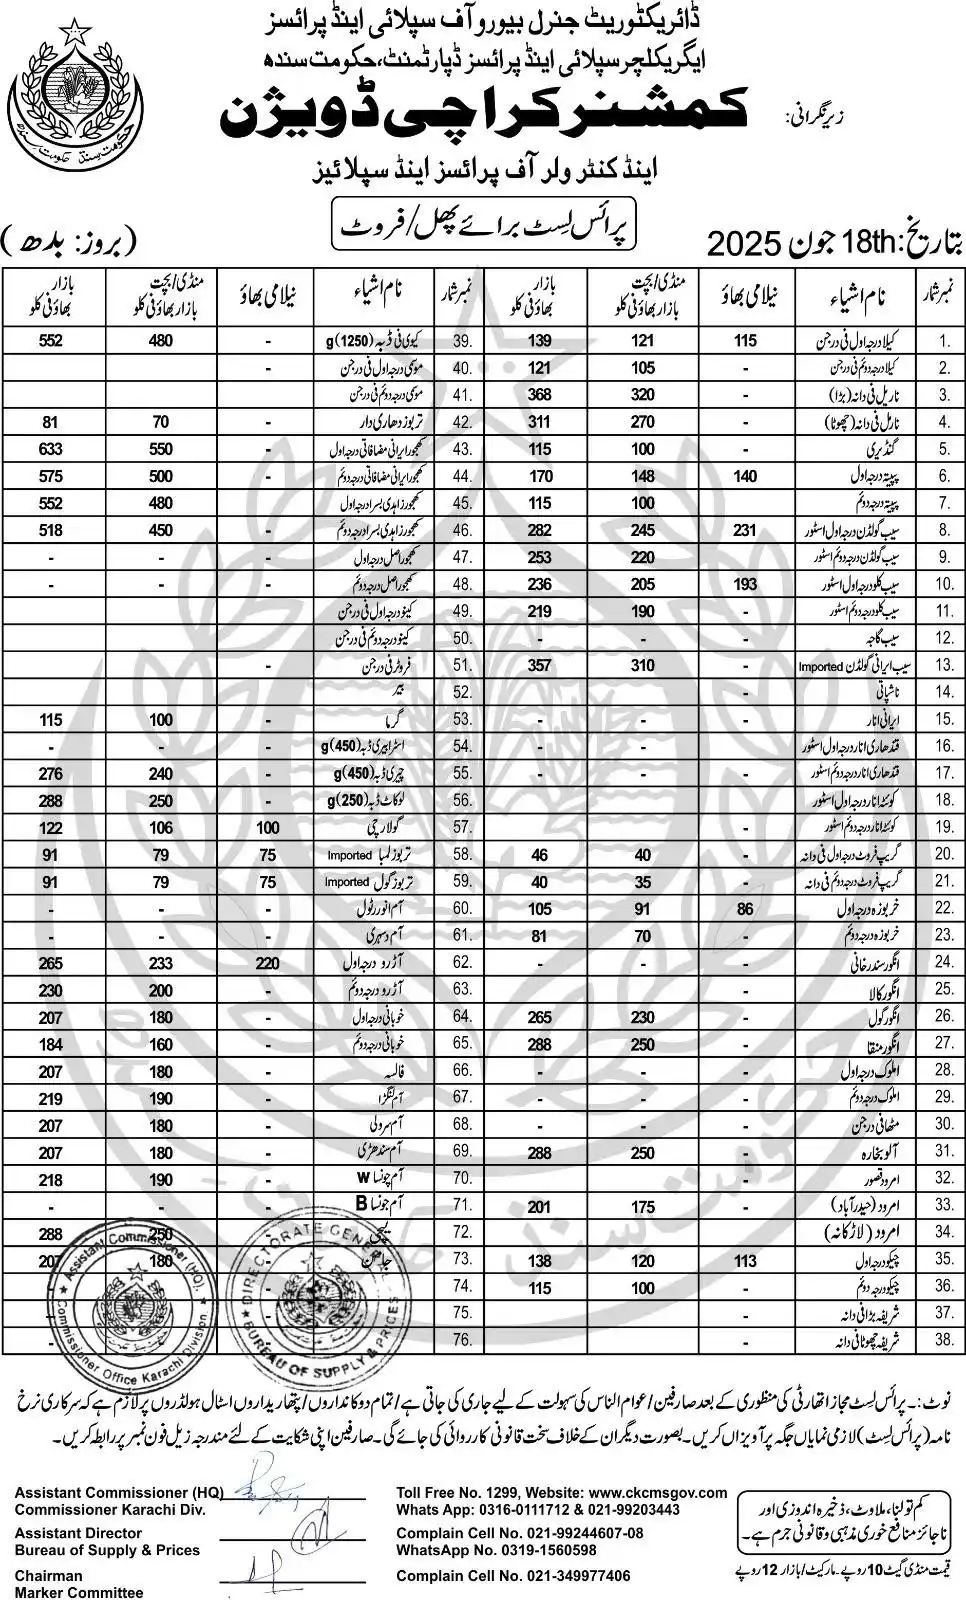 ڈائریکٹوریٹ جنرل بیورو آف سپلائی اینڈ پرائسز
ایگریکلچر سپلائی اینڈ پرائسز ڈپارٹمنٹ، حکومت سندھ
زیر نگرانی: کمشنر کراچی ڈویژن
اینڈ کنٹرولر آف پرائسز اینڈ سپلائیز
پرائس لسٹ برائے پھل/فروٹ
بتاریخ: 18th جون 2025 (بروز: بدھ)
نمبر شمار نام اشیاء نیلامی بھاؤ منڈی/بچت بازار بھاؤ فی کلو بازار بھاؤ فی کلو نمبر شمار نام اشیاء نیلامی بھاؤ منڈی/بچت بازار بھاؤ فی کلو بازار بھاؤ فی کلو
1. کیلا درجہ اول فی درجن 115 121 139 39. کیوی فی ڈبہ g(1250) - 480 552
2. کیلا درجہ دوئم فی درجن - 105 121 40. موسمی درجہ اول فی درجن -
3. ناریل فی دانہ (بڑا) - 320 368 41. موسمی درجہ دوئم فی درجن
4. ناریل فی دانہ (چھوٹا) - 270 311 42. تربوز دھاری دار - 70 81
5. گنڈیری - 100 115 43. کھجور ایرانی مضافاتی درجہ اول - 550 633
6. پپیتہ درجہ اول 140 148 170 44. کھجور ایرانی مضافاتی درجہ دوئم - 500 575
7. پپیتہ درجہ دوئم - 100 115 45. کھجور زاہدی بسرا درجہ اول - 480 552
8. سیب گولڈن درجہ اول اسٹور 231 245 282 46. کھجور زاہدی بسرا درجہ دوئم - 450 518
9. سیب گولڈن درجہ دوئم اسٹور - 220 253 47. کھجور اصل درجہ اول - - -
10. سیب کلو درجہ اول اسٹور 193 205 236 48. کھجور اصل درجہ دوئم - - -
11. سیب کلو درجہ دوئم اسٹور - 190 219 49. کینو درجہ اول فی درجن -
12. سیب گاجہ - - - 50. کینو درجہ دوئم فی درجن
13. سیب ایرانی گولڈن Imported - 310 357 51. فروٹر فی درجن -
14. ناشپاتی - 52. بیر
15. ایرانی انار - - - 53. گرما - 100 115
16. قندھاری انار درجہ اول اسٹور - - - 54. اسٹرابیری ڈبہ g(450) - - -
17. قندھاری انار درجہ دوئم اسٹور - - - 55. چیری ڈبہ g(450) - 240 276
18. کوئٹہ انار درجہ اول اسٹور 56. لوکاٹ ڈبہ g(250) - 250 288
19. کوئٹہ انار درجہ دوئم اسٹور - 57. گولارچی 100 106 122
20. گریپ فروٹ درجہ اول فی دانہ - 40 46 58. تربوز لمبا Imported 75 79 91
21. گریپ فروٹ درجہ دوئم فی دانہ - 35 40 59. تربوز گول Imported 75 79 91
22. خربوزہ درجہ اول 86 91 105 60. آم انور رٹول - - -
23. خربوزہ درجہ دوئم - 70 81 61. آم دسہری - - -
24. انگور سندرخانی - - - 62. آڑو درجہ اول 220 233 265
25. انگور کالا 63. آڑو درجہ دوئم - 200 230
26. انگور گول - 230 265 64. خوبانی درجہ اول - 180 207
27. انگور منقا - 250 288 65. خوبانی درجہ دوئم - 160 184
28. املوک درجہ اول - - - 66. فالسہ - 180 207
29. املوک درجہ دوئم - - - 67. آم لنگڑا - 190 219
30. مٹھا فی درجن - - - 68. آم سرولی - 180 207
31. آلو بخارہ - 250 288 69. آم سندھڑی - 180 207
32. امرود قصور - 70. آم چونسا W - 190 218
33. امرود (حیدرآباد) - 175 201 71. آم چونسا B - - -
34. امرود (لاڑکانہ) 72. لیچی 250 288
35. چیکو درجہ اول 113 120 138 73. جامن 180 207
36. چیکو درجہ دوئم - 100 115 74.
37. شریفہ بڑا فی دانہ - 75.
38. شریفہ چھوٹا فی دانہ - 76.
Assistant Commissioner (HQ)
Commissioner Office Karachi Division
DIRECTORATE GENERAL
BUREAU OF SUPPLY & PRICES
نوٹ:۔ پرائس لسٹ مجاز اتھارٹی کی منظوری کے بعد صارفین/عوام الناس کی سہولت کے لیے جاری کی جاتی ہے/تمام دوکانداروں/پتھاریداروں اسٹال ہولڈروں پر لازم ہے کہ سرکاری نرخ
نامہ (پرائس لسٹ) لازمی نمایاں جگہ پر آویزاں کریں۔ بصورت دیگر ان کے خلاف سخت قانونی کارروائی کی جائے گی۔ صارفین اپنی شکایت کے لئے مندرجہ زیل فون نمبر پر رابطہ کریں۔
Assistant Commissioner (HQ)
Commissioner Karachi Div.
Assistant Director
Bureau of Supply & Prices
Chairman
Marker Committee
Toll Free No. 1299, Website: www.ckcmsgov.com
Whats App: 0316-0111712 & 021-99203443
Complain Cell No. 021-99244607-08
WhatsApp No. 0319-1560598
Complain Cell No. 021-349977406
کم تولنا، ملاوٹ، ذخیرہ اندوزی اور
ناجائز منافع خوری مذہبی و قانونی جرم ہے۔
قیمت منڈی گیٹ 10 روپے۔ مارکیٹ/بازار 12 روپے